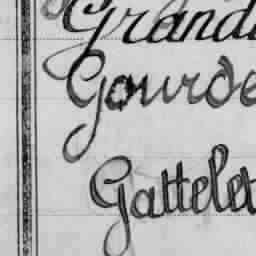 Grand
Gourde
Gattelet